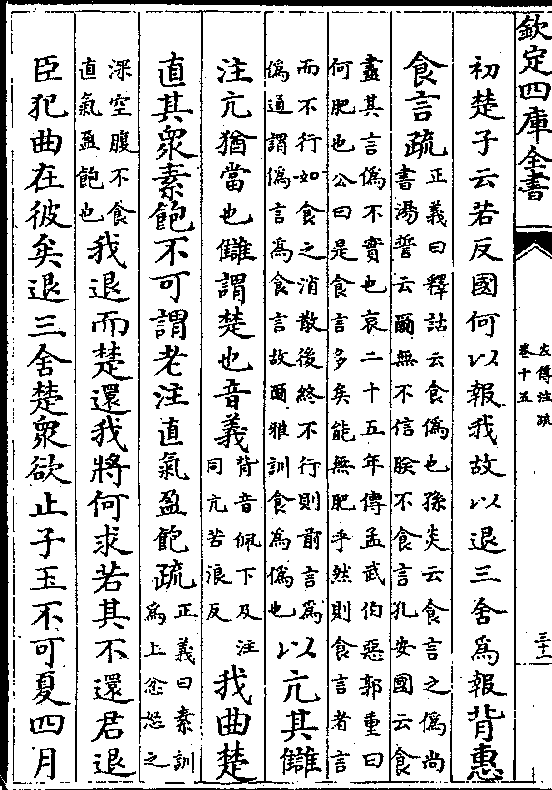 欽定四庫全書
左傳注疏
卷十五
三十一
初楚子云若反國何以報我故以退三舍為報背惠
食言疏正義曰釋詁云食偽也孫炎云食言之偽尚
書湯誓云爾無不信朕不食言孔安國云食
盡其言偽不實也哀二十五年傳孟武伯惡郭重曰
何肥也公曰是食言多矣能無肥乎然則食言者言
而不行如食之消散後終不行則前言為
偽通謂偽言為食言故爾雅訓食為偽也以亢其讎
注亢猶當也讎謂楚也音義背音佩下及注
同亢苦浪反我曲楚
直其眾素飽不可謂老注直氣盈飽疏正義曰素訓
為上忿怒之
深空腹不食
直氣盈飽也我退而楚還我將何求若其不還君退
臣犯曲在彼矣退三舍楚眾欲止子玉不可夏四月